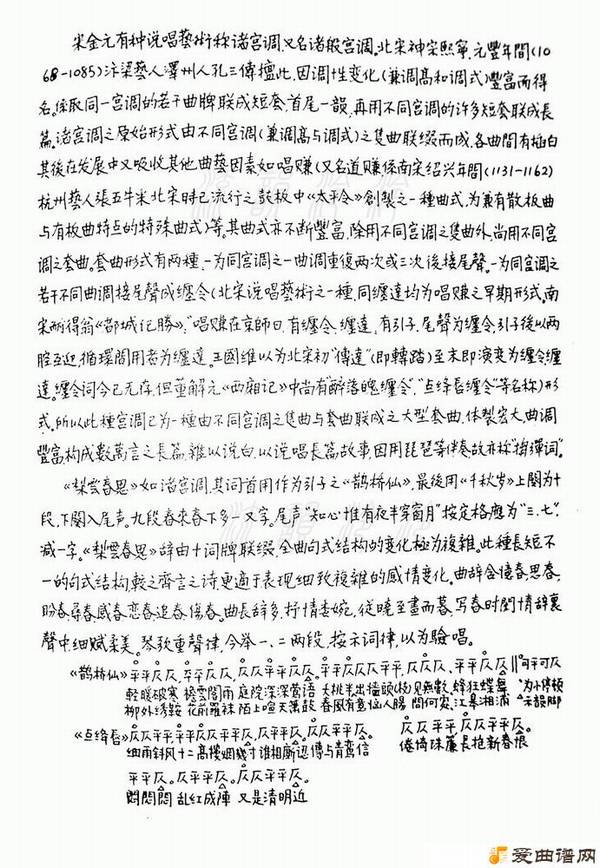 宋金元有种说唱藝術称諸宫调,又名诸般宫调。北宋神宗熙寧、元豐年間(10
68-1085)汴梁藝人澤州人孔三傳擅此,因调性变化(兼调高和调式)豐富而得
名。係取同一宫调的若干曲牌联成短套,首尾一韻,再用不同宫调的许多短套联成長
篇。诸宫调之原始形式由不同宫调(兼调高与调式)之隻曲联缀而成,各曲間有插白
其後在发展中又吸收其他曲藝因素如唱赚(又名道赚係南宋绍兴年間(1131-1162)
杭州藝人張五牛采北宋時已流行之鼓板中《太平令》創製之一種曲式,为兼有散板曲
与有板曲特点的特殊曲式)等。其曲式亦不断豐富,除用不同宫调之隻曲外,尚用不同宫
调之套曲。套曲形式有两種,一为同宫调之一曲调重復两次或三次後接尾聲。一为同宫调之
若干不同曲调接尾聲成缠令(北宋说唱藝術之一種,同缠達均为唱赚之早期形式,南
宋耐得翁《都城记勝》:"唱赚在京師日,有缠令、缠達,有引子、尾聲为缠令,引子後以两
腔互迎,循環間用者为缠達。王國维以为北宋初"傳達"(即轉踏)至末即演变为缠令缠
達。缠令词今已无存,但董解元《西厢记》中尚有"醉落魄缠令","点绛唇缠令"等名称)形
式。所以此種宫调已为一種由不同宫调之隻曲与套曲联成之大型套曲,体製宏大,曲调
豐富,构成數萬言之長篇,雜以说白,以说唱長篇故事,因用琵琶等伴奏故亦称"搊彈词"。
《梨雲春思》如诸宫调,其词首用作为引子之《鹊桥仙》,最後用《千秋岁》上闋为十
段,下闋入尾声。九段春來春下多一又字。尾声"知心惟有夜半窗前月"按定格應为"三、七",
减一字。《梨雲春思》辞由十词牌联缀,全曲句式结构的变化極为複雜。此種長短不
一的句式结构,較之齊言之诗,更適于表现细致複雜的感情变化。曲辞含憶春、思春、
盼春、尋春、感春、恋春、追春、傷春。曲長辞多,抒情委婉,従曉至晝而暮,写春时閨情辞裏
聲中,细赋柔美。琴歌重聲律,今举一、二两段,按示词律,以为驗唱。
《鹊橋仙》平平仄仄,平平仄仄,仄仄平平仄仄。仄平平仄仄平平,仄仄仄、平平仄仄
輕暖破寒 梧雲閣雨 庭院深深鶯语 夭桃半出墻頭 見無數、蜂狂蝶舞
柳外绣鞍 花前羅袜 陌上喧天簫鼓 春風有意惱人腸 問何處、江臯湘浦
《点绛唇》仄仄平平,仄平平仄平平仄。仄平平仄,仄仄平平仄。 仄仄平平,仄仄平平仄。
细雨斜风 十二高樓烟 幾寸 誰相廝 傳与青鸞信 倦倚珠簾 長抱新春恨
平平仄,仄平平仄。仄仄平平仄。
悶悶悶 乱红成陣 又是清明近
爱曲谱网